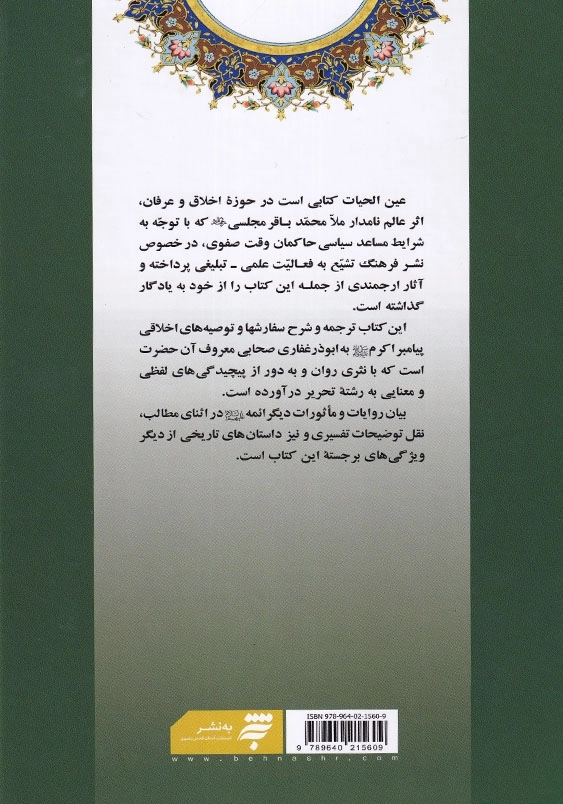 عین الحیات کتابی است در حوزهٔ اخلاق و عرفان،
اثر عالم نامدار ملاّ محمّد باقر مجلسی که با توجّه به
شرایط مساعد سیاسی حاکمان وقت صفوی، در خصوص
نشر فرهنگ تشیّع به فعالیّت علمی ـ تبلیغی پرداخته و
آثار ارجمندی از جمله این کتاب را از خود به یادگار
گذاشته است.
این کتاب ترجمه و شرح سفارشها و توصیه‌های اخلاقی
پیامبر اکرم ﷺ به ابوذر غفاری صحابی معروف آن حضرت
است که با نثری روان و به دور از پیچیدگی‌های لفظی
و معنایی به رشتهٔ تحریر درآورده است.
بیان روایات و مأثورات دیگر ائمه در اثنای مطالب،
نقل توضیحات تفسیری و نیز داستان‌های تاریخی از دیگر
ویژگی‌های برجستهٔ این کتاب است.
به‌نشر
ISBN 978-964-02-1560-9
9 789640 215609
www.behnashr.com